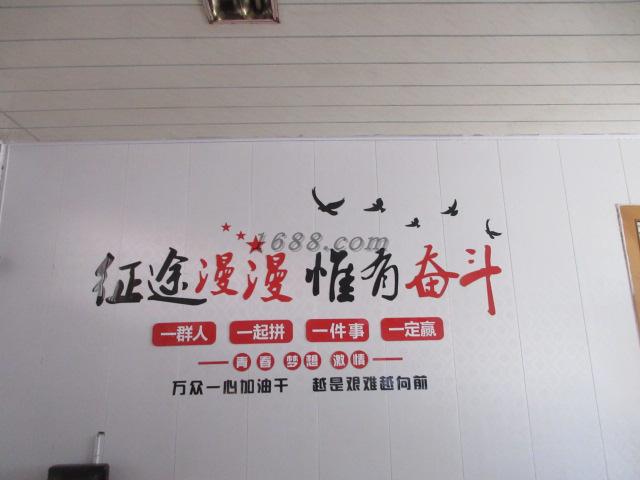 1688.com
征途漫漫 惟有奋斗
一群人 一起拼 一件事 一定赢
青春 梦想 激情
万众一心加油干 越是艰难越向前